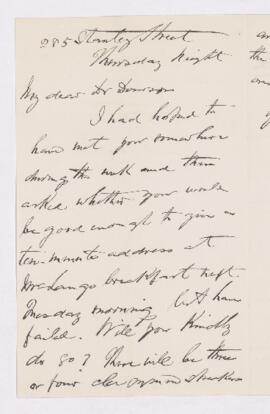 985 Stanley Street
Thursday Night
My dear Dr Dawson
I had hoped to
have met you somewhere
during the week and then
asked whether you would
be good enough to give a
ten-minute address at
breakfast next
Tuesday morning but have
failed. Will you Kindly
do so? There will be three
or four clergymen speakers
an
the